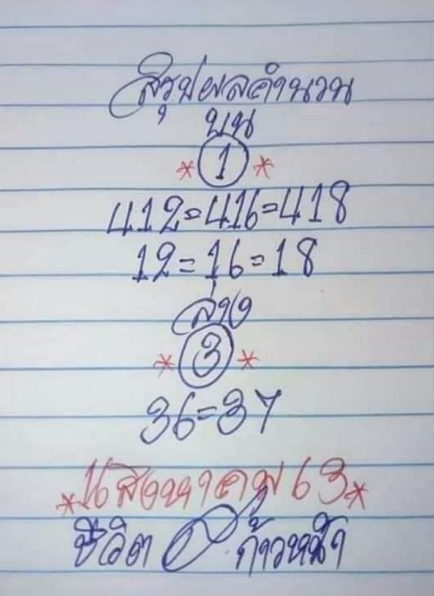 สรุปผลคำนวน
บน
*1*
412=416=418
12=16=18
ล่าง
*3*
36=37
*1 สิงหาคม 63*
ชีวิต ก้าวหน้า